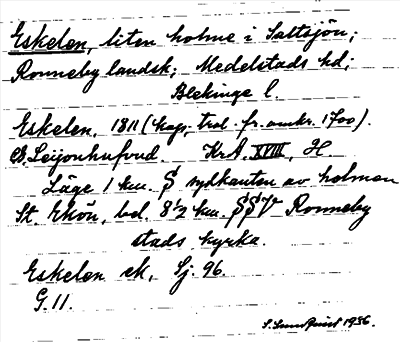 Eskelen, liten holme i Saltsjön;
Ronneby landsk; Medelstads hd;
Blekinge l.
Eskelen, 1811 (kop. trol. fr. omkr. 1700).
Leijonhufvud. KrA. XVIII, H.
Läge 1 km. S sydkanten av holmen
St. Ekön, bel. 8½ km. SSV Ronneby
stads kyrka.
Eskelen ek, Sj. 96.
G. 11.
S. Sundquist 1936.